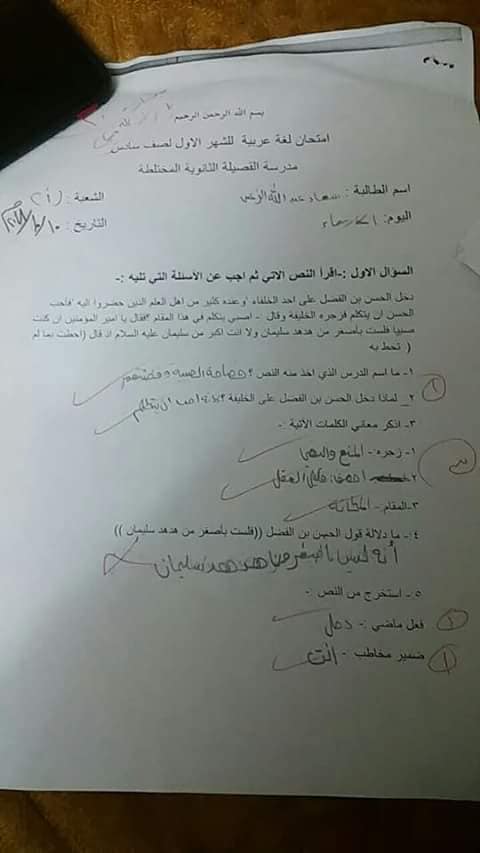 بسم الله الرحمن الرحيم
امتحان لغة عربية للشهر الاول لصف سادس
مدرسة الفصيلة الثانوية المختلطة
اسم الطالبة : سعاد عبدالله الشعبة : (أ)
اليوم : الاربعاء التاريخ : ١٠/
السؤال الاول :-اقرأ النص الاتي ثم اجب عن الأسئلة التي تليه :-
دخل الحسن بن الفضل على احد الخلفاء 'وعنده كثير من اهل العلم الذين حضروا اليه 'فأحب
الحسن ان يتكلم فزجره الخليفة وقال :- اصبي يتكلم في هذا المقام ؟فقال يا امير المؤمنين ان كنت
صبيا فلست بأصغر من هدهد سليمان ولا انت اكبر من سليمان عليه السلام اذ قال (احطت بما لم
تحط به )
١- ما اسم الدرس الذي اخذ منه النص ؟ فصاحة الصبية وفطنتهم
٢_ لماذا دخل الحسن بن الفضل على الخليفة ؟ لانه احب ان يتكلم
٣- اذكر معاني الكلمات الآتية :-
١- زجره :- المنع والنهي
٢ احمق: قليل العقل
٣-المقام :- المكانة
٤:- ما دلالة قول الحسن بن الفضل ((فلست بأصغر من هدهد سليمان ))
أنه ليس بالصغر من هدهد سليمان
٥:- استخرج من النص :-
فعل ماضي :- دخل
ضمير مخاطب :- انت